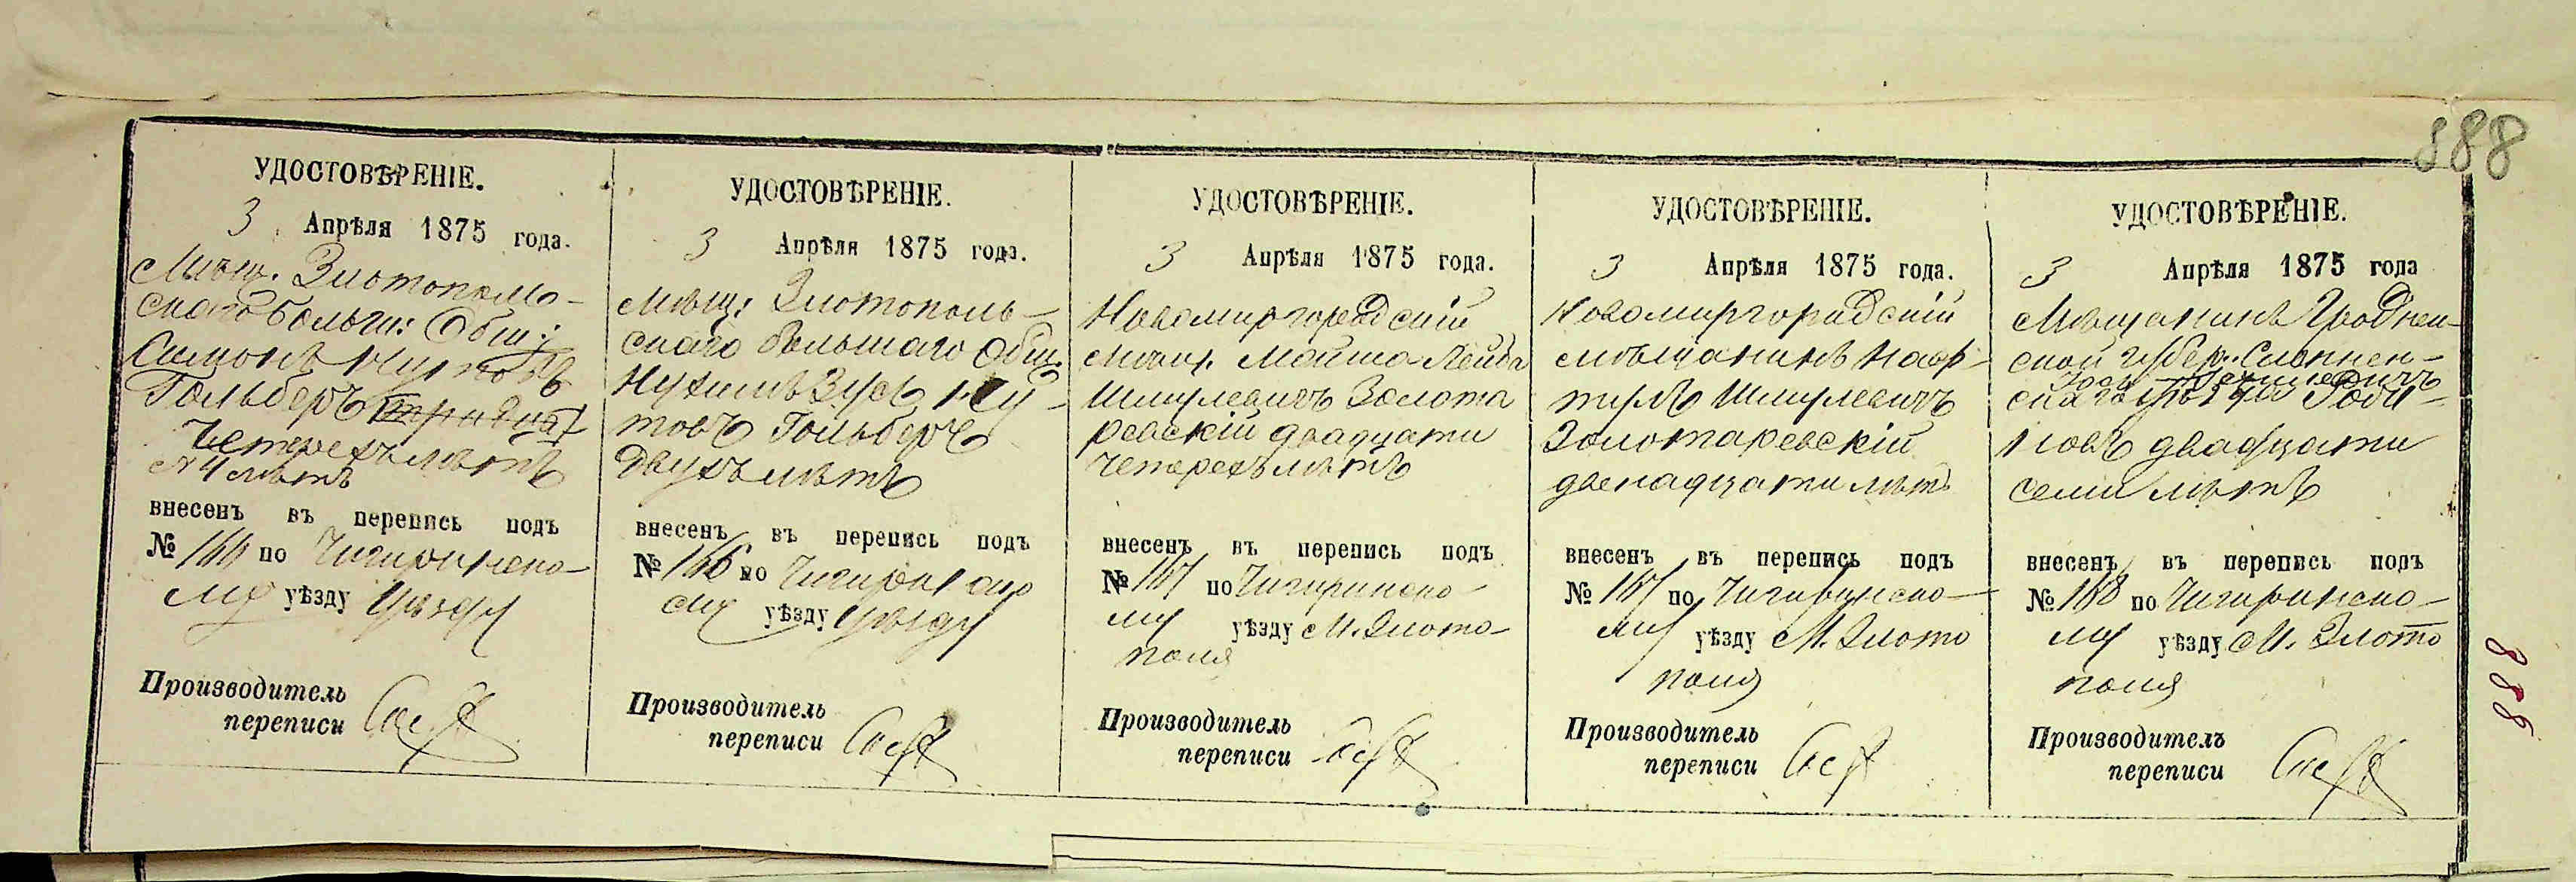 388
УДОСТОВѢРЕНІЕ.
3 Апрѣля 1875 года.
Мѣщ. Златополь-
скаго больш: Общ:
Симонъ
Гольберъ
четырехъ лѣтъ
4 лѣтъ
внесенъ въ перепись подъ
№ по Чигиринско-
му уѣзду Уѣзду
Производитель
переписи
УДОСТОВѢРЕНІЕ.
3 Апрѣля 1875 года.
Мѣщ: Златополь-
скаго большаго Общ.
Нухимъ Зусь
Гольберъ
двухъ лѣтъ
внесенъ въ перепись подъ
№ по Чигиринско
му уѣзду Уѣзду
Производитель
переписи
УДОСТОВѢРЕНІЕ.
3 Апрѣля 1875 года.
Новомиргородскій
мѣщ. Мойша-Лейба
Шмулевичъ Золота
ревскій двадцати
четырехъ лѣтъ
внесенъ въ перепись подъ
№ по Чигиринско-
му уѣзду М. Злото-
поля
Производитель
переписи
УДОСТОВѢРЕНІЕ.
3 Апрѣля 1875 года.
Новомиргородскій
мѣщанинъ Наф-
тулъ Шмулевичъ
Золотаревскій
двенадцати лѣтъ
внесенъ въ перепись подъ
№ по Чигиринско-
му уѣзду М. Злото
поля
Производитель
переписи
УДОСТОВѢРЕНІЕ.
3 Апрѣля 1875 года
Мѣщанинъ Гроднен-
ской губер. Слонимск-
скаго уѣзда
двадцати
семи лѣтъ
внесенъ въ перепись подъ
№ 188 по Чигиринско-
му уѣзду М. Злото
поля
Производитель
переписи
888